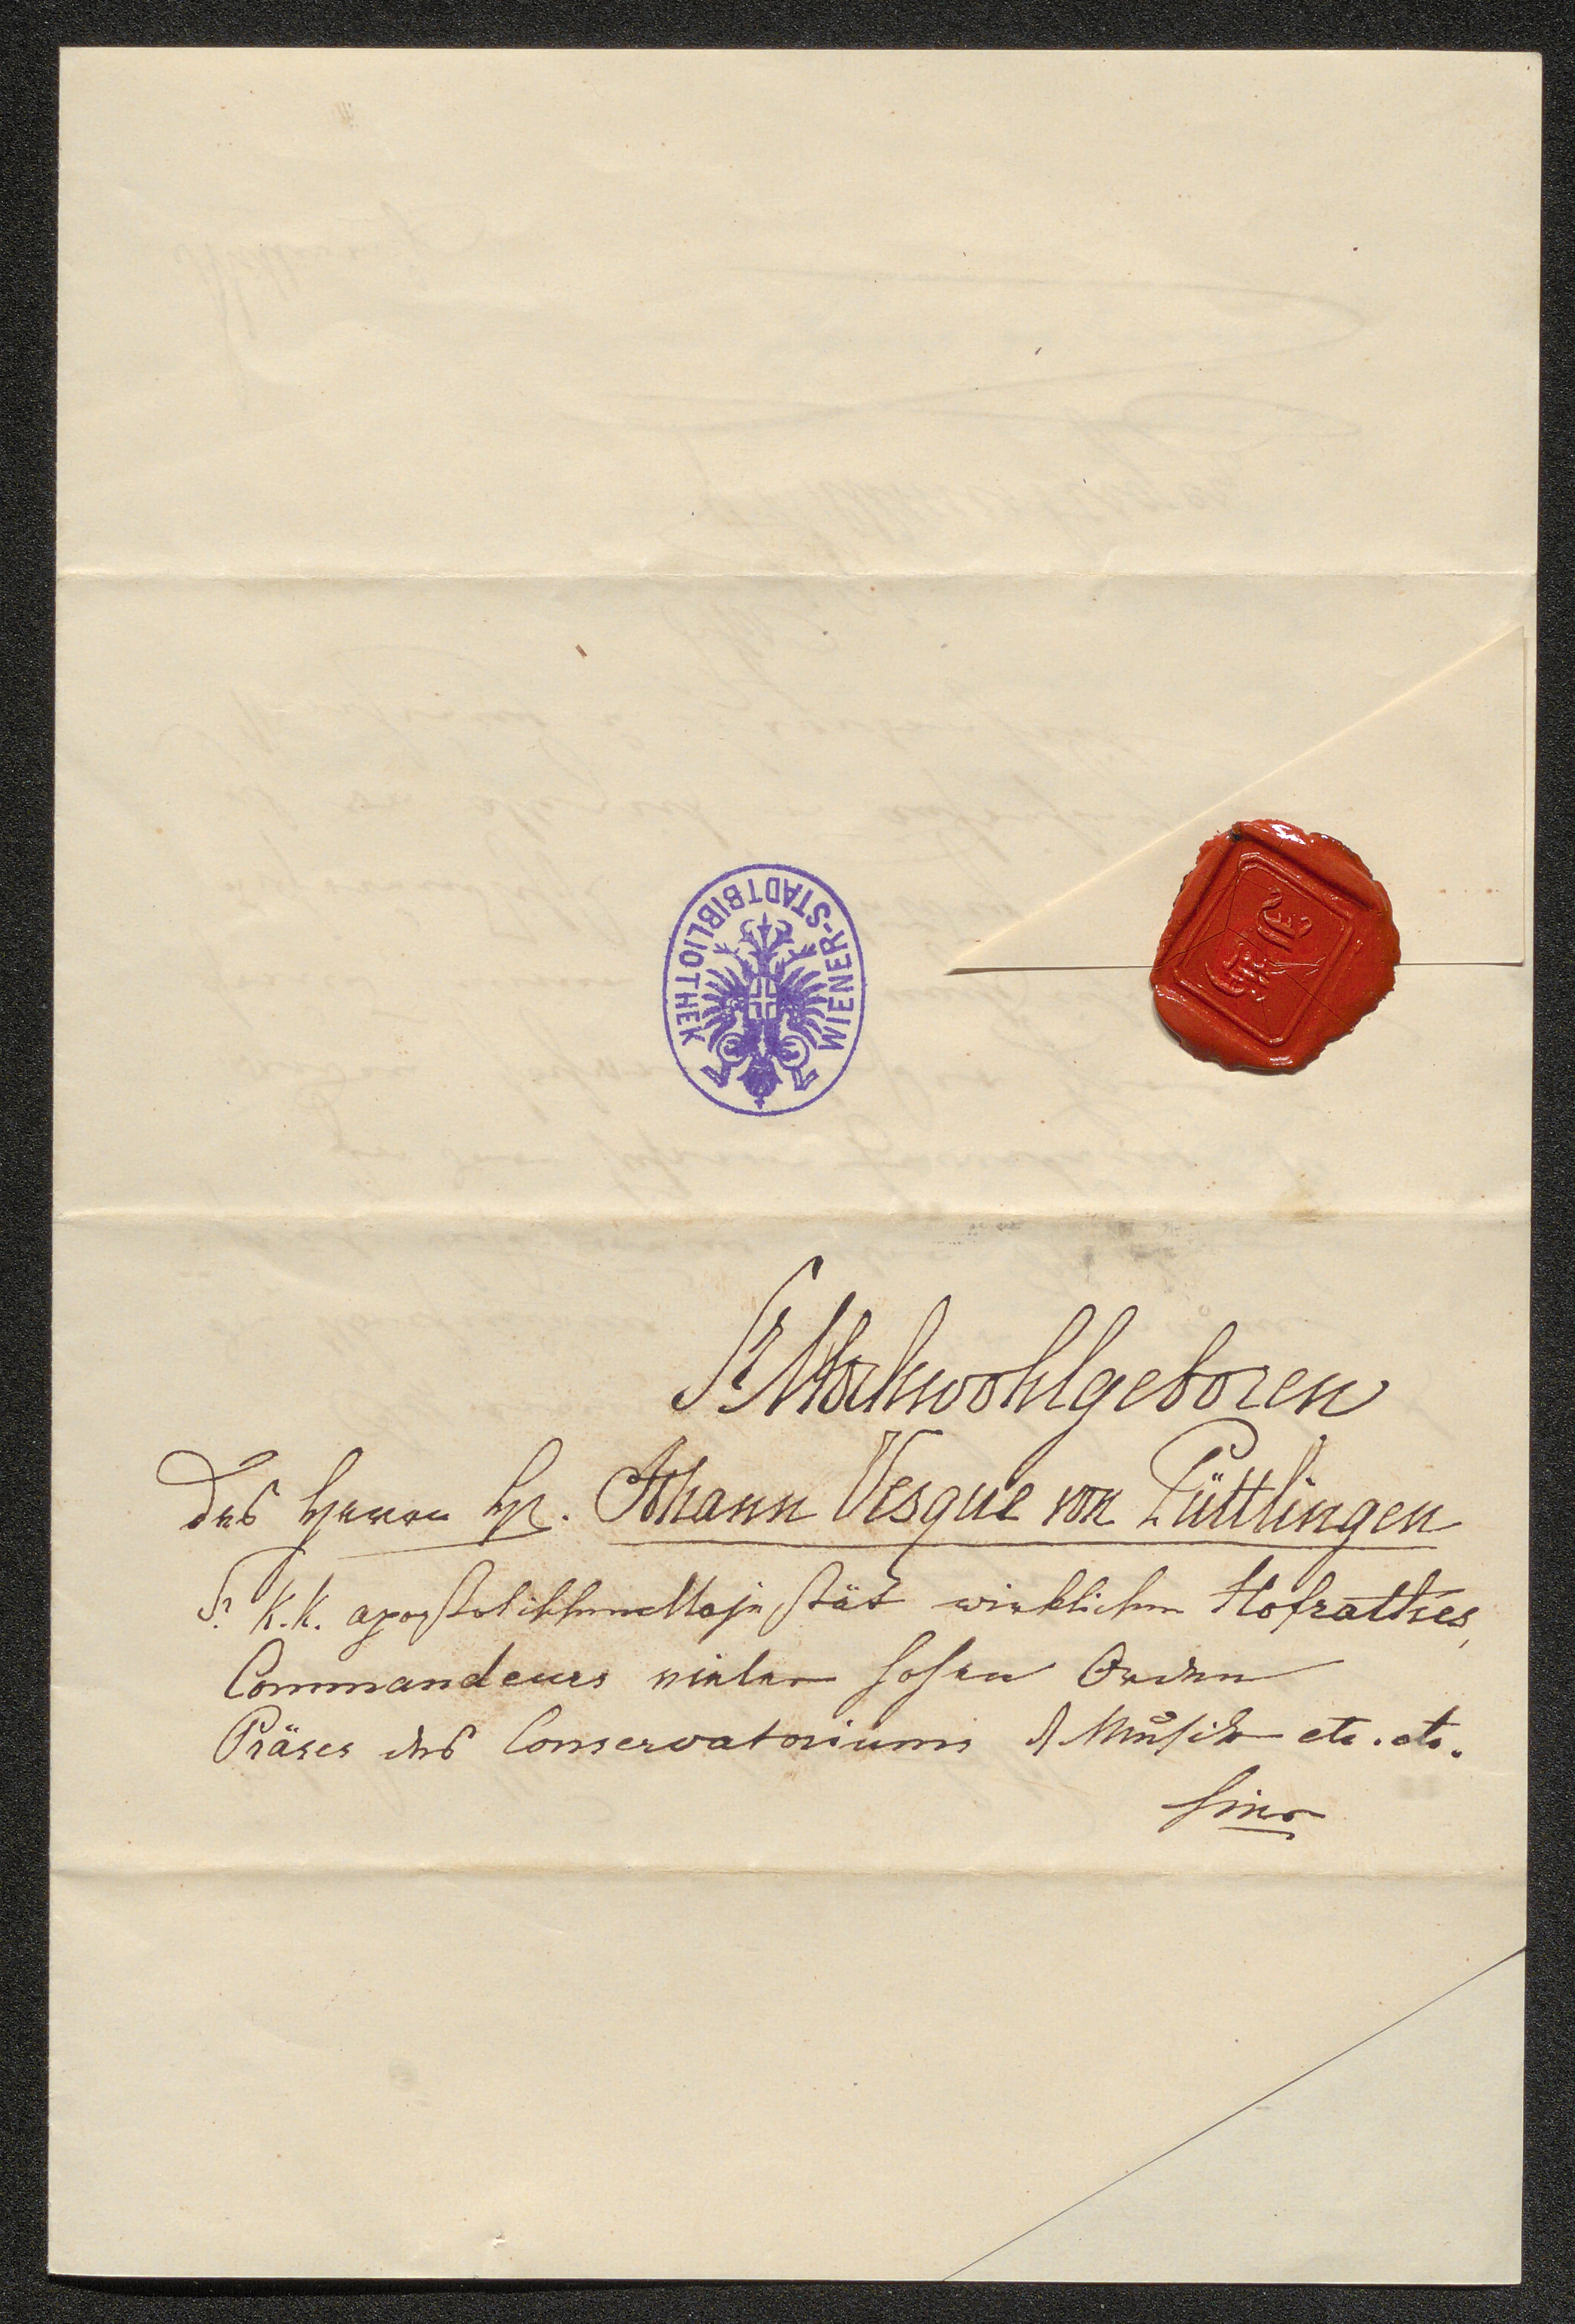 WIENER-STADTBIBLIOTHEK
Sr Hochwohlgeboren
Des Herrn H. Johann Vesque von Püttlingen
Sr K. k. apostolischen Majestät wirklichen Hofrathes,
Commandeurs vieler hohen Orden
Präses des Conservatoriums d Musik etc. etc.
hier